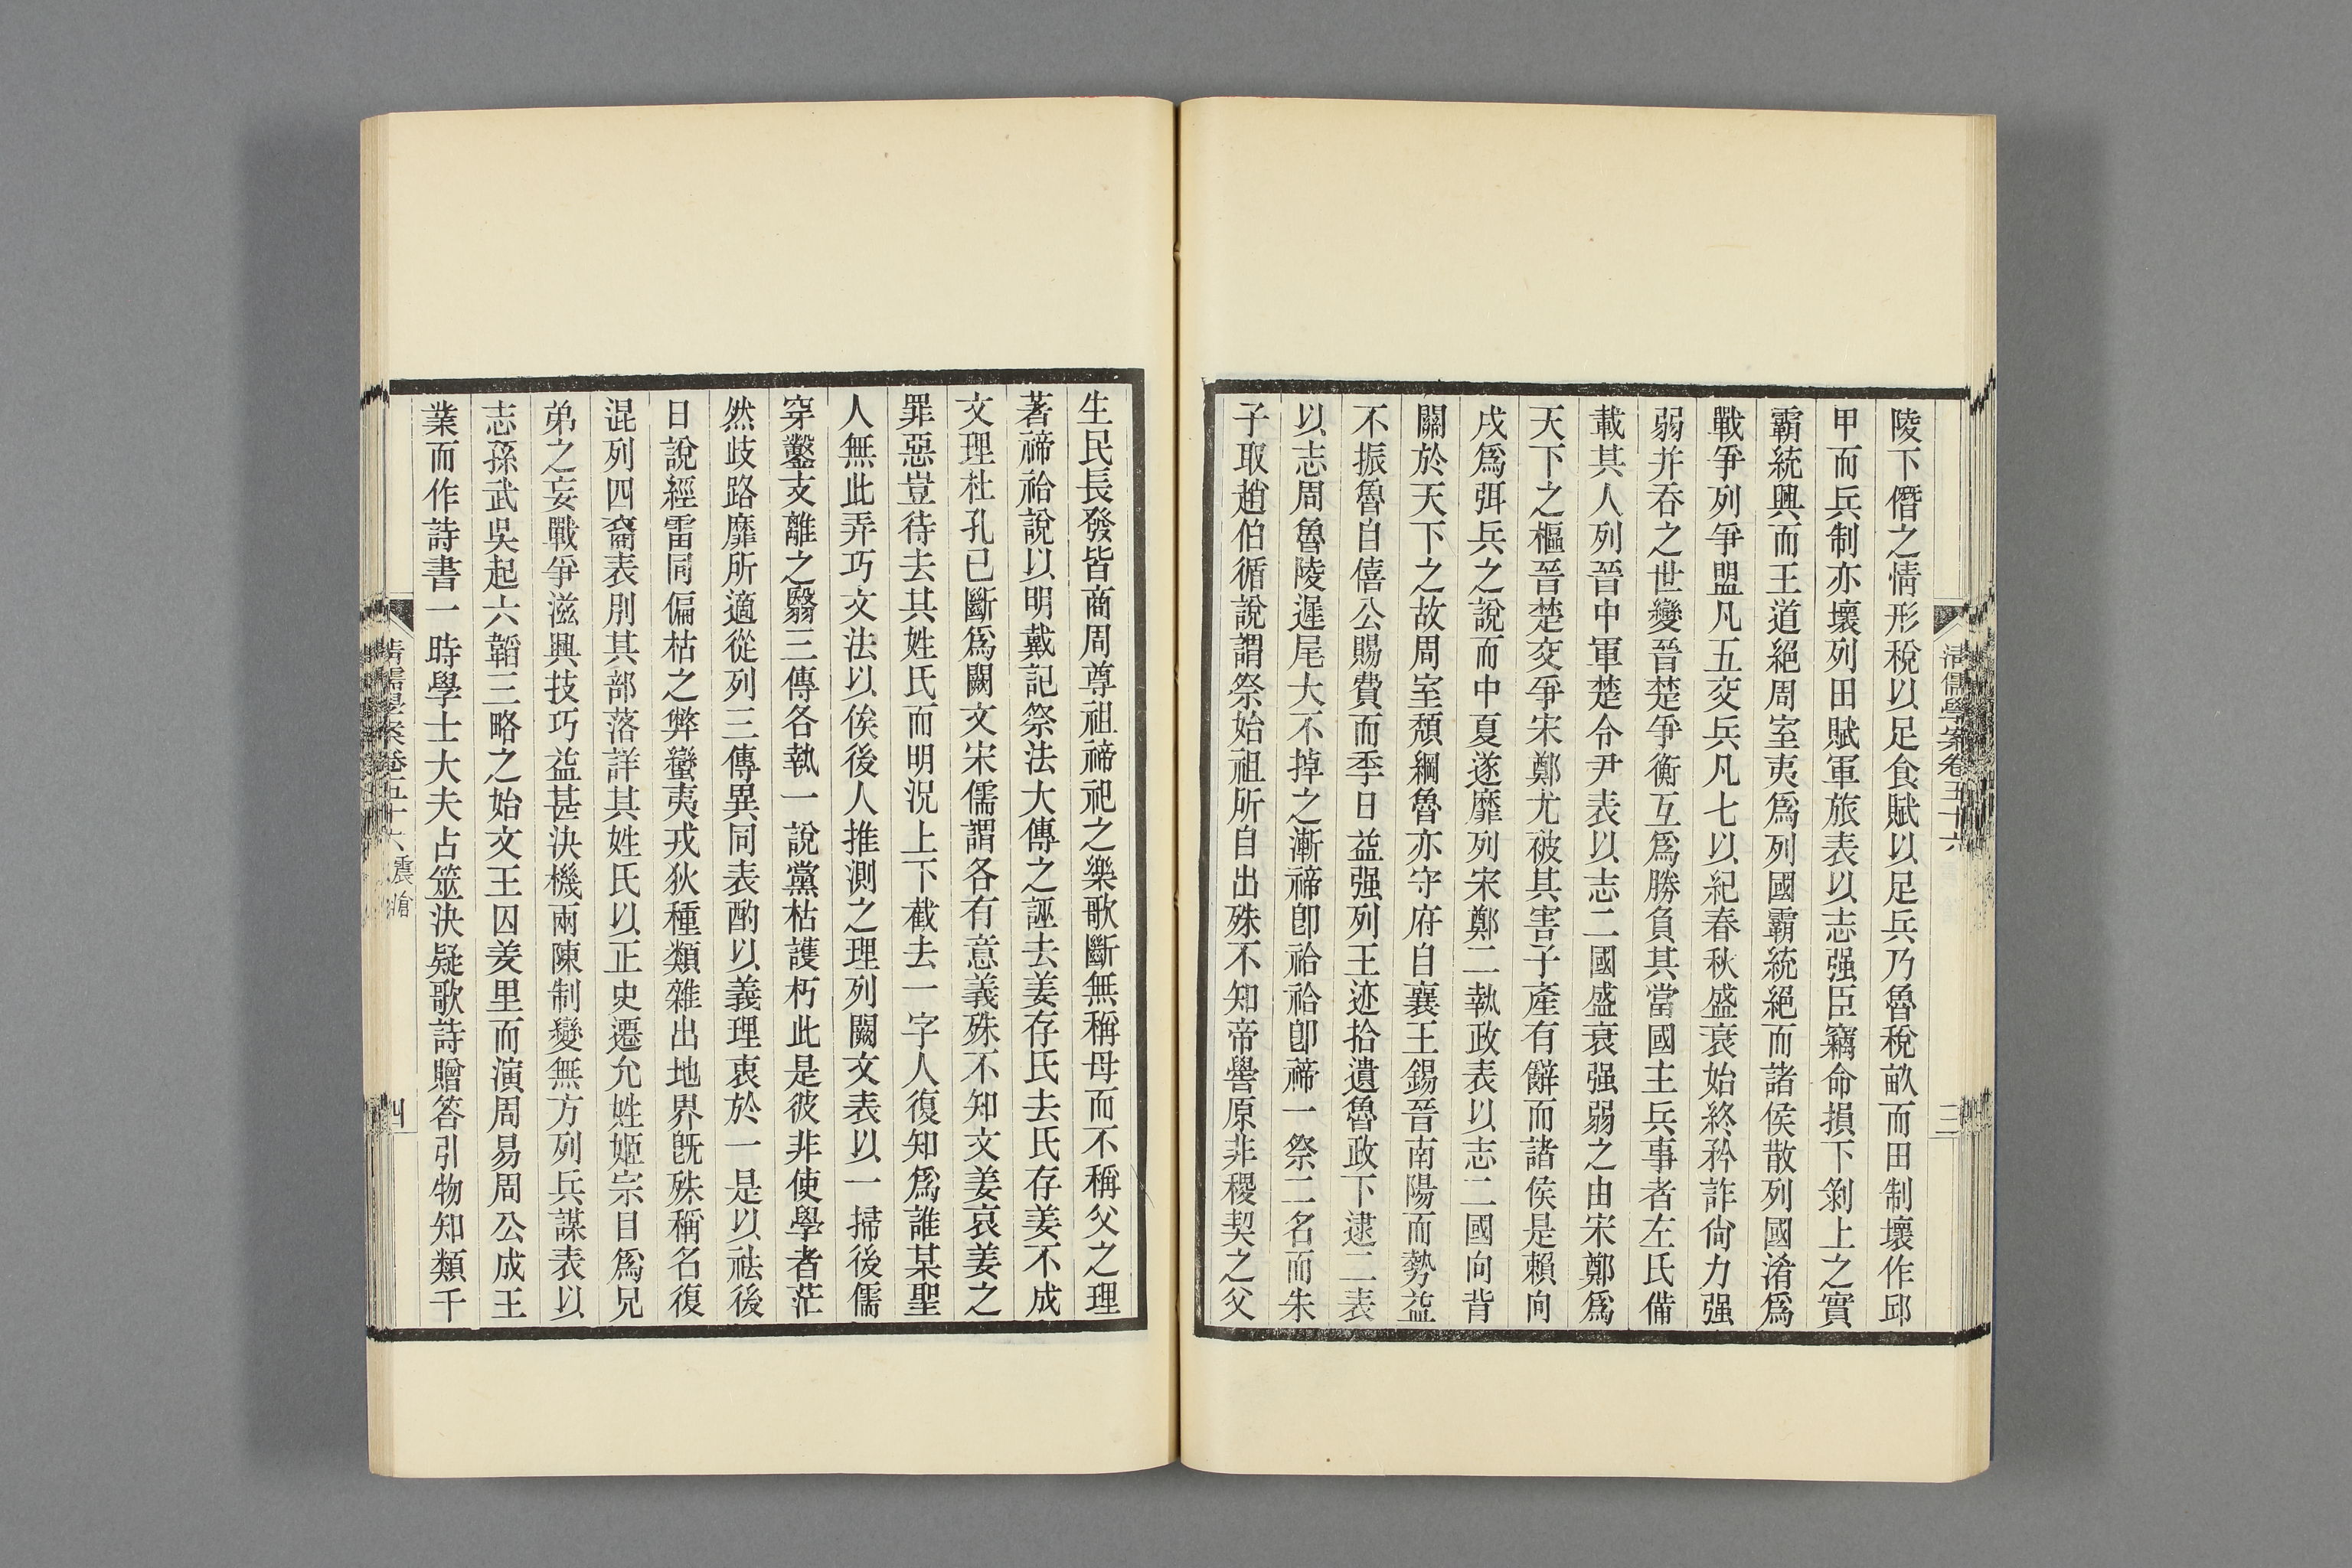 清儒學案卷五十六
三
陵下僭之情形稅以足食賦以足兵乃魯稅畝而田制壞作邱
甲而兵制亦壞列田賦軍旅表以志强臣竊命損下剝上之實
霸統興而王道絕周室夷爲列國霸統絕而諸侯散列國淆爲
戰爭列爭盟凡五交兵凡七以紀春秋盛衰始終矜詐尙力强
弱并吞之世變晉楚爭衡互爲勝負其當國主兵事者左氏備
載其人列晉中軍楚令尹表以志二國盛衰强弱之由宋鄭爲
天下之樞晉楚交爭宋鄭尤被其害子產有辭而諸侯是賴向
戌爲弭兵之說而中夏遂靡列宋鄭二執政表以志二國向背
關於天下之故周室頹綱魯亦守府自襄王錫晉南陽而勢益
不振魯自僖公賜費而季日益强列王迹拾遺魯政下逮二表
以志周魯陵遲尾大不掉之漸禘卽祫祫卽禘一祭二名而朱
子取趙伯循說謂祭始祖所自出殊不知帝嚳原非稷契之父
生民長發皆商周尊祖禘祀之樂歌斷無稱母而不稱父之理
著禘祫說以明戴記祭法大傳之誣去姜存氏去氏存姜不成
文理杜孔已斷爲闕文宋儒謂各有意義殊不知文姜哀姜之
罪惡豈待去其姓氏而明況上下截去一字人復知爲誰某聖
人無此弄巧文法以俟後人推測之理列闕文表以一掃後儒
穿鑿支離之翳三傳各執一說黨枯護朽此是彼非使學者茫
然歧路靡所適從列三傳異同表酌以義理衷於一是以祛後
日說經雷同偏枯之弊蠻夷戎狄種類雜出地界旣殊稱名復
混列四裔表別其部落詳其姓氏以正史遷允姓姬宗目爲兄
弟之妄戰爭滋興技巧益甚決機兩陳制變無方列兵謀表以
志孫武吳起六韜三略之始文王囚羑里而演周易周公成王
業而作詩書一時學士大夫占筮決疑歌詩贈答引物知類千
清儒學案卷五十六 震滄
四